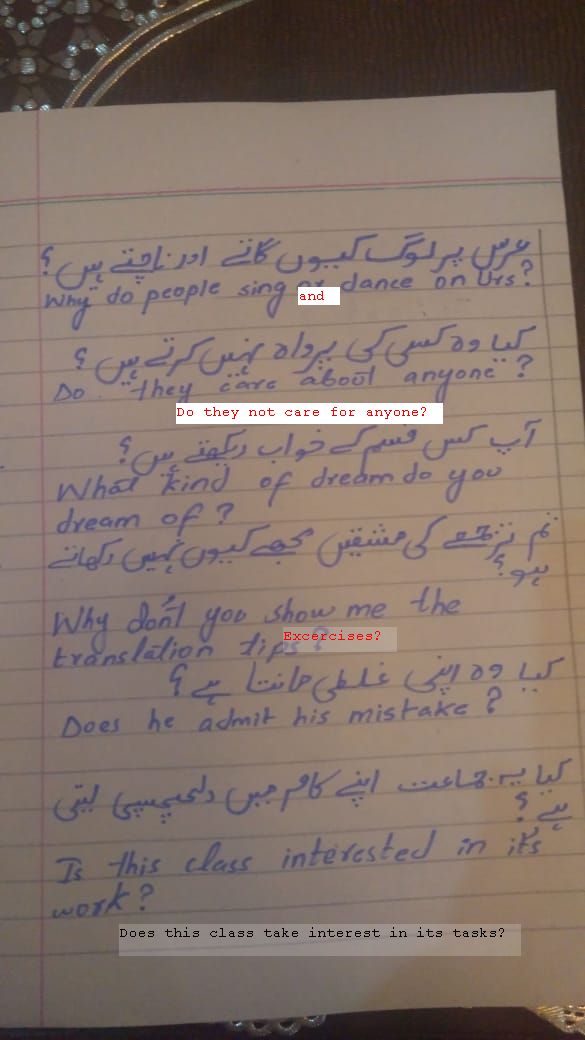 عرس پر لوگ کیوں گاتے اور ناچتے ہیں ؟
Why do people sing or dance on Urs?
and
کیا وہ کسی کی پرواہ نہیں کرتے ہیں ؟
Do they care about anyone ?
Do they not care for anyone?
آپ کس قسم کے خواب دیکھتے ہیں ؟
What kind of dream do you
dream of ?
تم ترجمے کی مشقیں مجھے کیوں نہیں دکھاتے
ہو ؟
Why don't you show me the
translation tips ?
Excercises?
کیا وہ اپنی غلطی مانتا ہے ؟
Does he admit his mistake ?
کیا یہ جماعت اپنے کام میں دلچسپی لیتی
ہے ؟
Is this class interested in it's
work ?
Does this class take interest in its tasks?